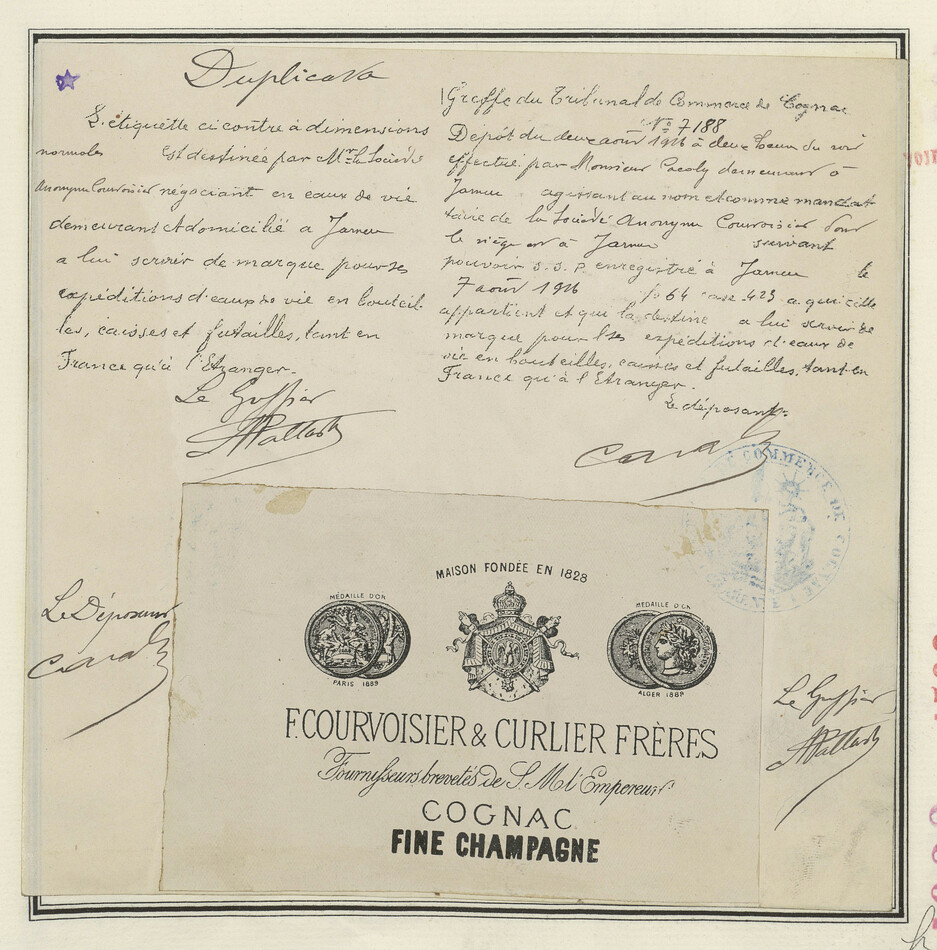 Duplicata
L'étiquette ci contre à dimensions
normales est destinée par Mr la Société
Anonyme Courvoisier négociant en eaux de vie
demeurant et domicilié à Jarnac
a lui servir de marque pour ses
expéditions d'eaux de vie en bouteil
les, caisses et futailles, tant en
France qu'à l'Etranger.
Le Greffier
Greffe du Tribunal de Commerce de Cognac
No 7188
Dépôt du deux août 1916 à deux heures du soir
effectué par Monsieur demeurant à
Jarnac agissant au nom et comme manda
taire de la Société Anonyme Courvoisier dont
le siège est à Jarnac suivant
pouvoir S. S. P. enregistré à Jarnac le
7 août 1916 fo 64 case 423 a qui elle
appartient et que la destine a lui servir de
marque pour ses expéditions d'eaux de
vie en bouteilles, caisses et futailles, tant en
France qu'à l'Etranger.
Le déposant
COMMERCE DE COGNAC
CHARENTE
Le Déposant
Le Greffier
MAISON FONDÉE EN 1828
MÉDAILLE D'OR
PARIS 1889
MEDAILLE D'OR
ALGER 1889
F. COURVOISIER & CURLIER FRÈRES
Fournisseurs brevetés de S. M. l'Empereur
COGNAC
FINE CHAMPAGNE